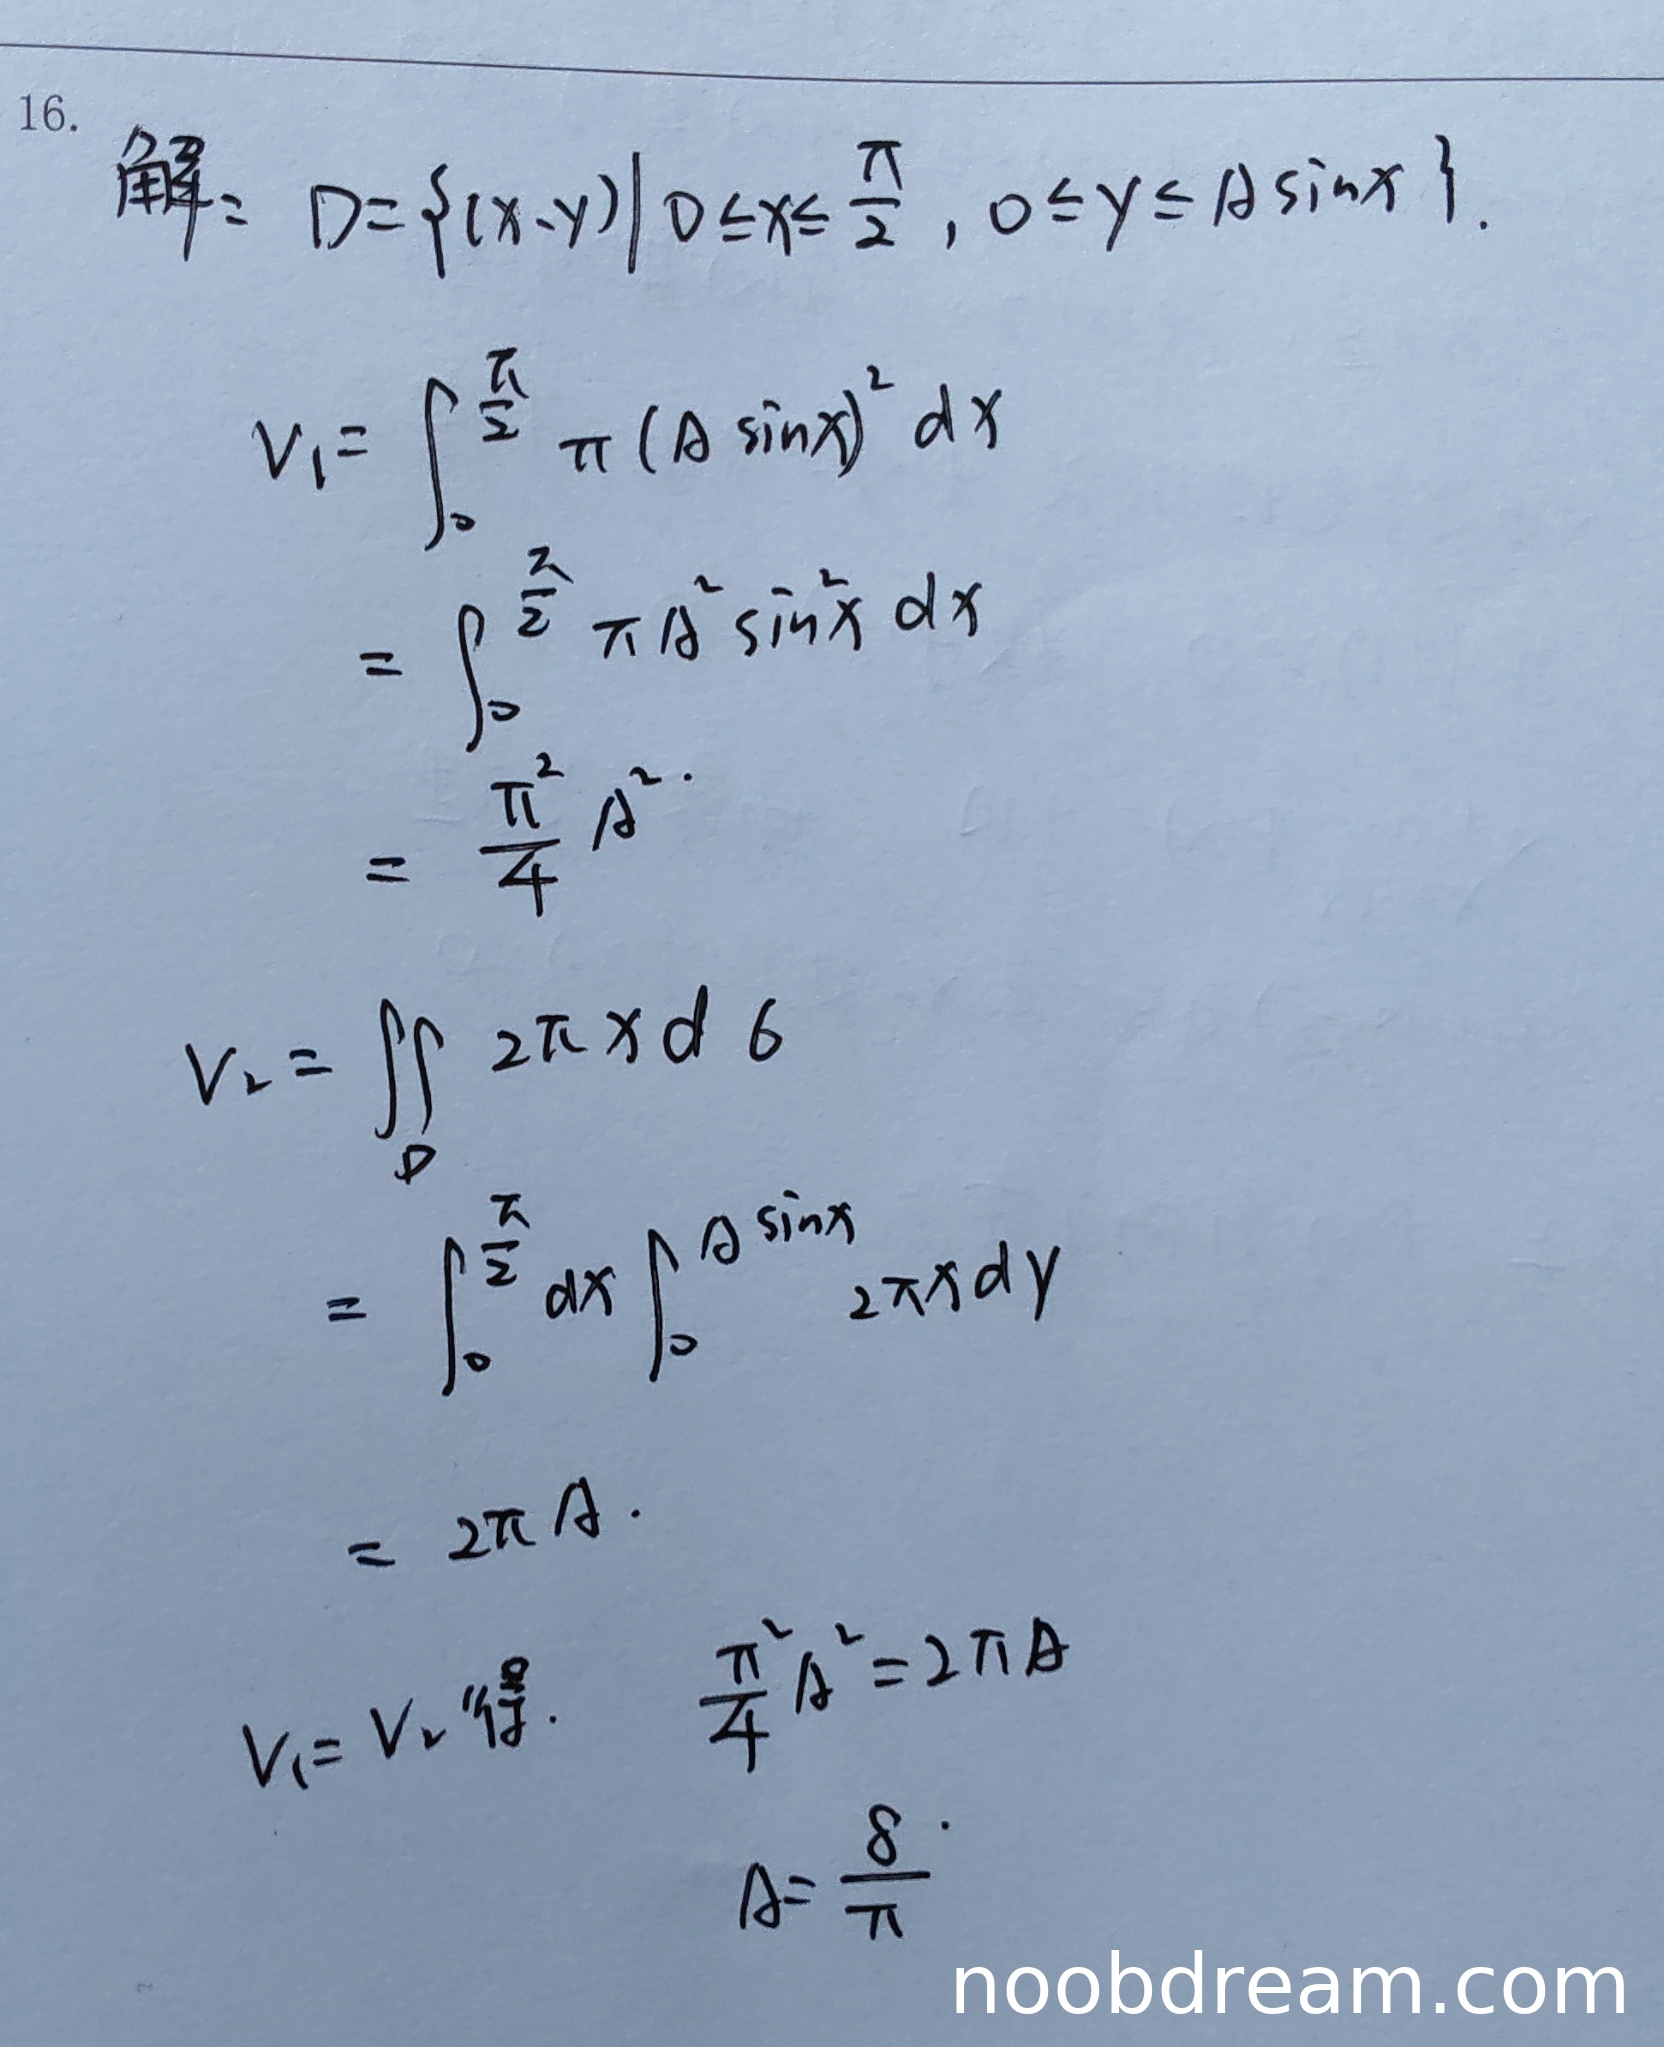 16.
解: D={(x、y)| 0≤x≤π/2 , 0≤y≤A sinx }.
V₁= ∫₀^(π/2) π (A sinx)² dx
= ∫₀^(π/2) π A² sin²x dx
= π²/4 A².
V₂ = ∬_D 2π x d σ
= ∫₀^(π/2) dx ∫₀^(A sinx) 2πx dy
= 2π A.
V₁= V₂ 得. π²/4 A² = 2π A
A= 8/π.
noobdream.com